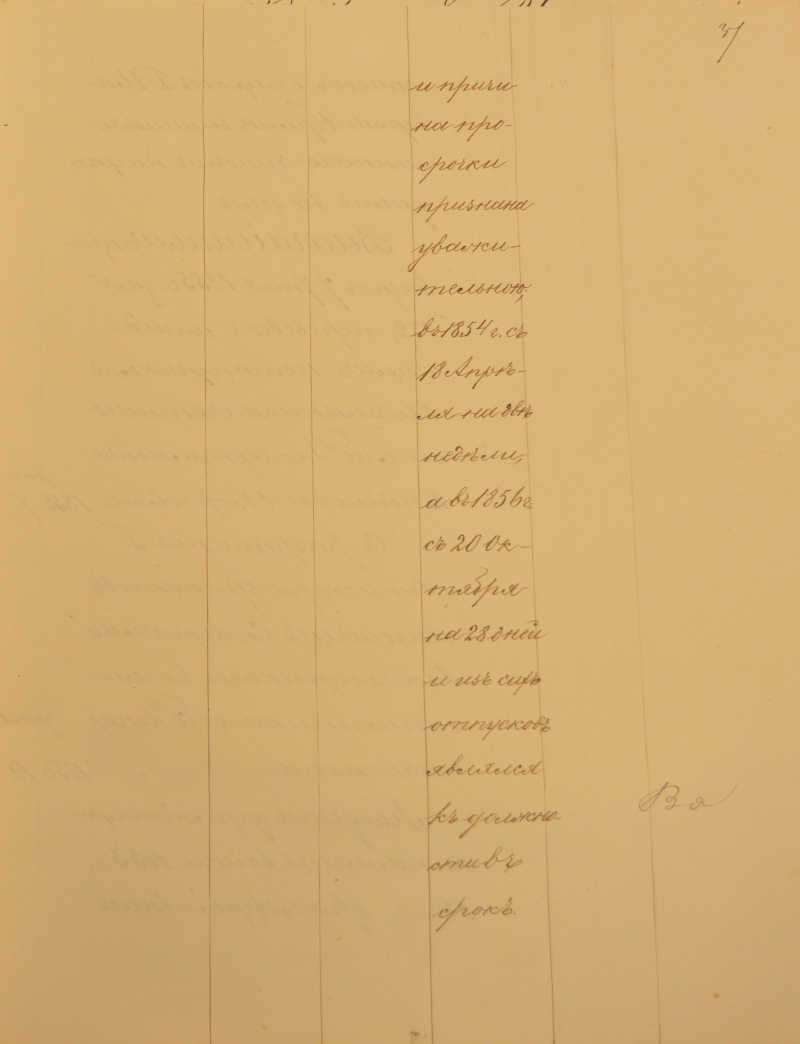 и причи
на про-
срочки
признана
уважи-
тельною,
въ 1854 г. съ
18 Апрѣ-
ля на двѣ
недѣли,
а въ 1856 г.
съ 20 Ок-
тября
на 28 дней
и изъ сихъ
отпусковъ
являлся
къ должно
сти въ
срокъ.